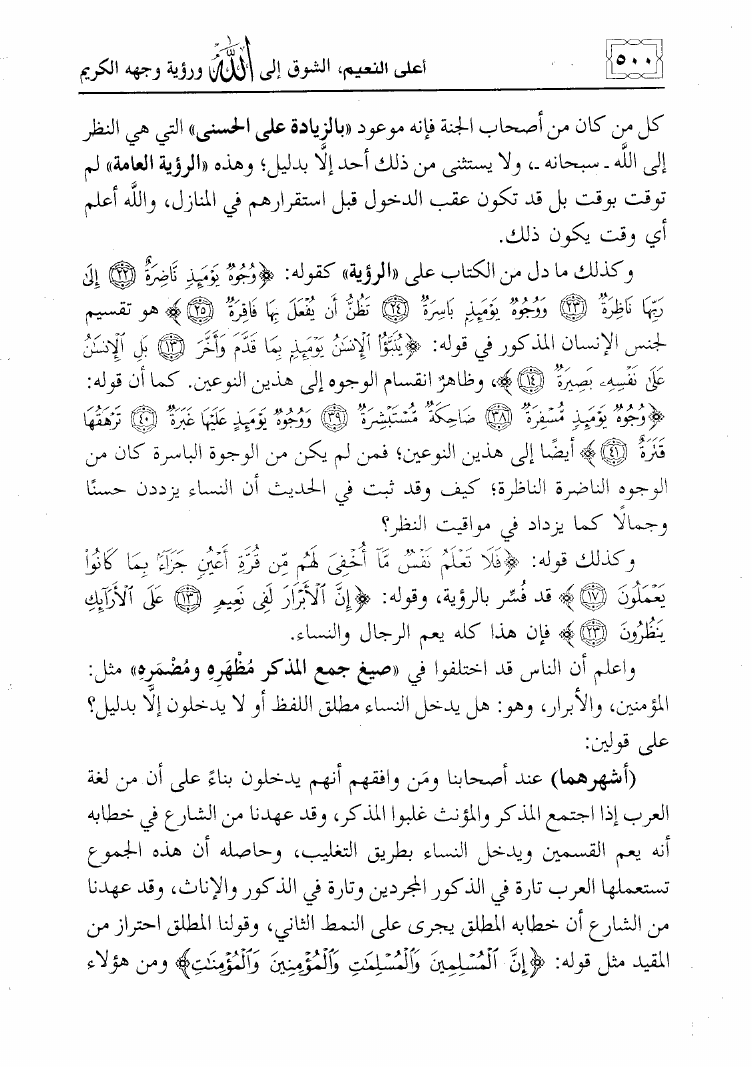 ٥٠٠
أعلى النعيم، الشوق إلى الله ورؤية وجهه الكريم
كل من كان من أصحاب الجنة فإنه موعود «بالزيادة على الحسنى» التي هي النظر
إلى اللَّه ـ سبحانه ـ، ولا يستثنى من ذلك أحد إلَّا بدليل؛ وهذه «الرؤية العامة» لم
توقت بوقت بل قد تكون عقب الدخول قبل استقرارهم في المنازل، واللَّه أعلم
أي وقت يكون ذلك.
وكذلك ما دل من الكتاب على «الرؤية» كقوله: ﴿وُجُوهٌ يَوْمَئِذٍ نَّاضِرَةٌ ﴿٢٢﴾ إِلَىٰ
رَبِّهَا نَاظِرَةٌ ﴿٢٣﴾ وَوُجُوهٌ يَوْمَئِذٍ بَاسِرَةٌ ﴿٢٤﴾ تَظُنُّ أَن يُفْعَلَ بِهَا فَاقِرَةٌ ﴿٢٥﴾﴾ هو تقسيم
لجنس الإنسان المذكور في قوله: ﴿يُنَبَّؤُا الْإِنسَٰنُ يَوْمَئِذٍ بِمَا قَدَّمَ وَأَخَّرَ ﴿١٣﴾ بَلِ الْإِنسَٰنُ
عَلَىٰ نَفْسِهِۦ بَصِيرَةٌ ﴿١٤﴾﴾، وظاهرٌ انقسام الوجوه إلى هذين النوعين. كما أن قوله:
﴿وُجُوهٌ يَوْمَئِذٍ مُّسْفِرَةٌ ﴿٣٨﴾ ضَاحِكَةٌ مُّسْتَبْشِرَةٌ ﴿٣٩﴾ وَوُجُوهٌ يَوْمَئِذٍ عَلَيْهَا غَبَرَةٌ ﴿٤٠﴾ تَرْهَقُهَا
قَتَرَةٌ ﴿٤١﴾﴾ أيضًا إلى هذين النوعين؛ فمن لم يكن من الوجوة الباسرة كان من
الوجوه الناضرة الناظرة؛ كيف وقد ثبت في الحديث أن النساء يزددن حسنًا
وجمالًا كما يزداد في مواقيت النظر؟
وكذلك قوله: ﴿فَلَا تَعْلَمُ نَفْسٌ مَّا أُخْفِىَ لَهُم مِّن قُرَّةِ أَعْيُنٍ جَزَاءً بِمَا كَانُوا
يَعْمَلُونَ ﴿١٧﴾﴾ قد فُسِّر بالرؤية، وقوله: ﴿إِنَّ الْأَبْرَارَ لَفِى نَعِيمٍ ﴿١٣﴾ عَلَى الْأَرَائِكِ
يَنظُرُونَ ﴿٢٣﴾﴾ فإن هذا كله يعم الرجال والنساء.
واعلم أن الناس قد اختلفوا في «صيغ جمع المذكر مُظْهَرِهِ ومُضْمَرِهِ» مثل:
المؤمنين، والأبرار، وهو: هل يدخل النساء مطلق اللفظ أو لا يدخلون إلَّا بدليل؟
على قولين:
(أشهرهما) عند أصحابنا ومَن وافقهم أنهم يدخلون بناءً على أن من لغة
العرب إذا اجتمع المذكر والمؤنث غلبوا المذكر، وقد عهدنا من الشارع في خطابه
أنه يعم القسمين ويدخل النساء بطريق التغليب، وحاصله أن هذه الجموع
تستعملها العرب تارة في الذكور المجردين وتارة في الذكور والإناث، وقد عهدنا
من الشارع أن خطابه المطلق يجرى على النمط الثاني، وقولنا المطلق احتراز من
المقيد مثل قوله: ﴿إِنَّ الْمُسْلِمِينَ وَالْمُسْلِمَٰتِ وَالْمُؤْمِنِينَ وَالْمُؤْمِنَٰتِ﴾ ومن هؤلاء